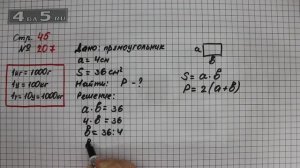 4OL5.RU
Стр. 46
№ 207
1кг=1000г
1ц=100кг
1т=10ц=1000кг
Дано: прямоугольник
a = 4см
S = 36 см²
Найти: P - ?
Решение:
a · b = 36
4 · b = 36
b = 36:4
b
a
b
S = a · b
P = 2(a+b)